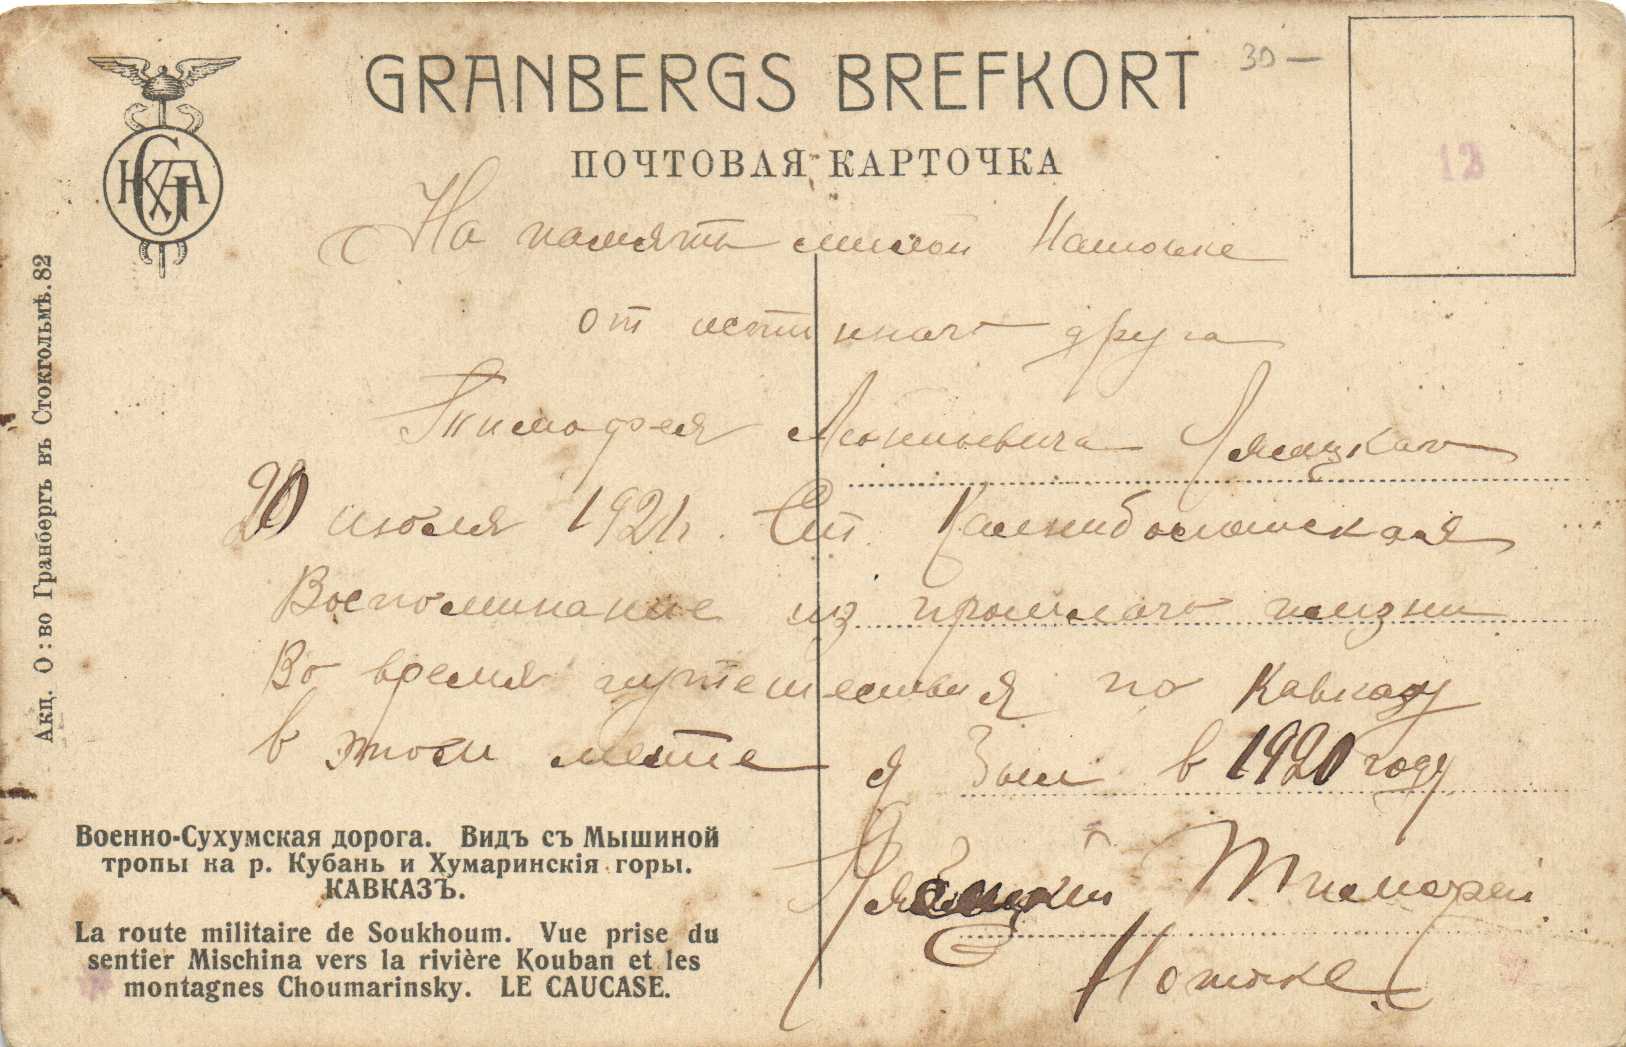 GRANBERGS BREFKORT
30 —
ПОЧТОВАЯ КАРТОЧКА
12
На память милой
от истинаго друга
Тимофея
20 июля 1921 г. Ст.
Воспоминание из прошлаго жизни
Во время путешествия по Кавказу
в этом месте я был в 1920 году
Тимофей
Акц. О:во Гранбергъ въ Стокгольмѣ. 82
Военно-Сухумская дорога. Видъ съ Мышиной
тропы на р. Кубань и Хумаринскія горы.
КАВКАЗЪ.
La route militaire de Soukhoum. Vue prise du
sentier Mischina vers la rivière Kouban et les
montagnes Choumarinsky. LE CAUCASE.